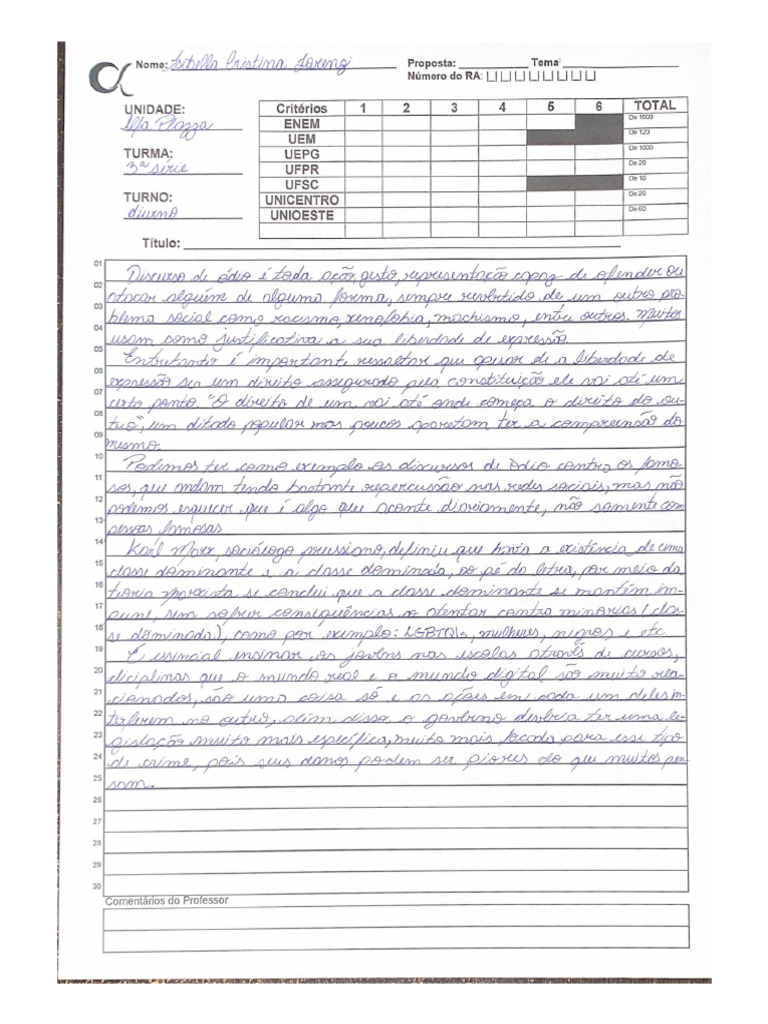 Nome: Isabella Cristina Lorenzi Proposta: Tema:
Número do RA:
UNIDADE:
Alfa Plazza
TURMA:
3ª série
TURNO:
diurno
Critérios 1 2 3 4 5 6 TOTAL
ENEM De 1000
UEM De 120
UEPG De 1000
UFPR De 20
UFSC De 10
UNICENTRO De 20
UNIOESTE De 60
Título:
01 Discurso de ódio é toda ação, gesto, representação capaz de ofender ou
02 atacar alguém de alguma forma, sempre revertido de um outro pro-
03 blema social como racismo, xenofobia, machismo, entre outros. Muitos
04 usam como justificativa a sua liberdade de expressão.
05 Entretanto é importante ressaltar que apesar de a liberdade de
06 expressão ser um direito assegurado pela constituição ele vai até um
07 certo ponto "O direito de um vai até onde começa o direito do ou-
08 tro", um ditado popular mas poucos aparetam ter a compreensão do
09 mesmo.
10 Podemos ter como exemplo os discursos de ódio contra os famo-
11 sos, que andam tendo bastante repercussão nas redes sociais, mas não
12 podemos esquecer que é algo que aconte diariamente, não somente com
13 pessoas famosas.
14 Karl Marx, sociólogo prussiano, definiu que havia a existência de uma
15 classe dominante e a classe dominada, ao pé da letra, por meio da
16 teoria exposta se conclui que a classe dominante se mantém im-
17 pune, sem sofrer consequências ao atentar contra minorias (clas-
18 se dominada), como por exemplo: LGBTQIs, mulheres, negros e etc.
19 É essincial ensinar os jovens nas escolas através de cursos,
20 diciplinas que o mundo real e o mundo digital são muito rela-
21 cionados, são uma coisa só e as ações em cada um deles in-
22 terferem no outro, além disso, o governo deveria ter uma le-
23 gislação muito mais específica, muito mais focada para esse tipo
24 de crime, pois seus danos podem ser piores do que muitos pen-
25 sam.
26
27
28
29
30
Comentários do Professor